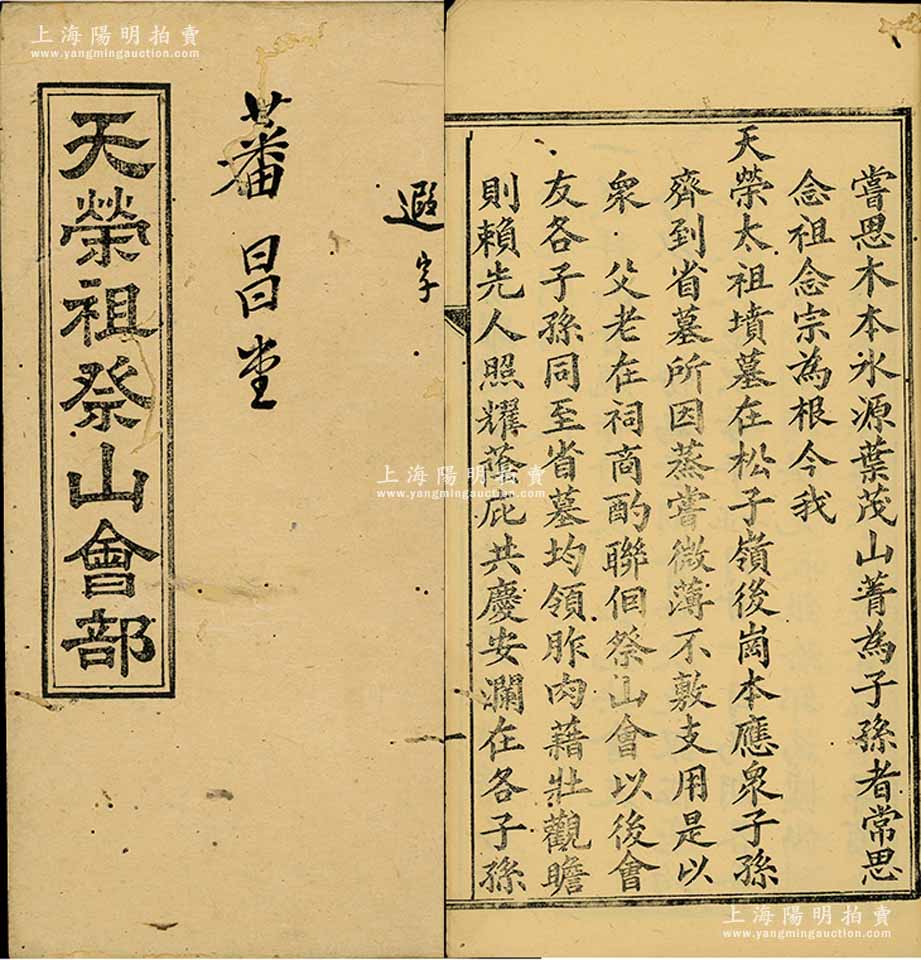 嘗思木本水源葉茂山菁為子孫者常思
念祖念宗為根今我
天榮太祖墳墓在松子嶺後崗本應衆子孫
齊到省墓所因蒸嘗微薄不敷支用是以
衆父老在祠商酌聯佪祭山會以後會
友各子孫同至省墓均領胙肉藉壯觀瞻
則賴先人照耀蔭庇共慶安瀾在各子孫
遐字
蕃昌堂
天榮祖祭山會部
上海陽明拍賣
www.yangmingauction.com
上海陽明拍賣
www.yangmingauction.com
上海陽明拍賣
www.yangmingauction.com